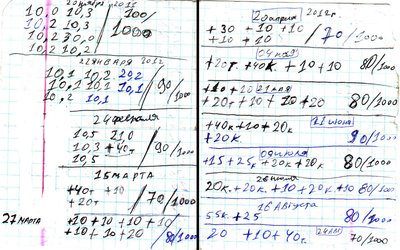 20 ноября 2011
10,0 10,3 / 100/
10,2 10,3 / 1000
10,2 30,0
10,2 10,2
22 января 2012
10,1 10,2 29,2
10,1 10,1 10,1 / 90/
10,2 10,1 / 1000
24 февраля
10,5 21,0
10,3 +40т / 90/
10,5 / 1000
15 марта
+40т +10
+20т / 70/1000
27 марта +20 +10 +10 +10
+10 +10 +20 80/1000
20 апреля 2012г
+30 +10 +10
+10 +10 / 70/1000
04 мая
+20т +40к +10 +10 80/1000
+10 +20 21 мая
+20т +10 +10 +20 80/1000
+40к +10 +20к 11 июня
+20к 90/1000
+15 +25к +20к +20к 80/1000
20к +20к +10 +20к +10 80/1000
16 августа
55к +25 80/1000
20 +10 +40г 80/1000